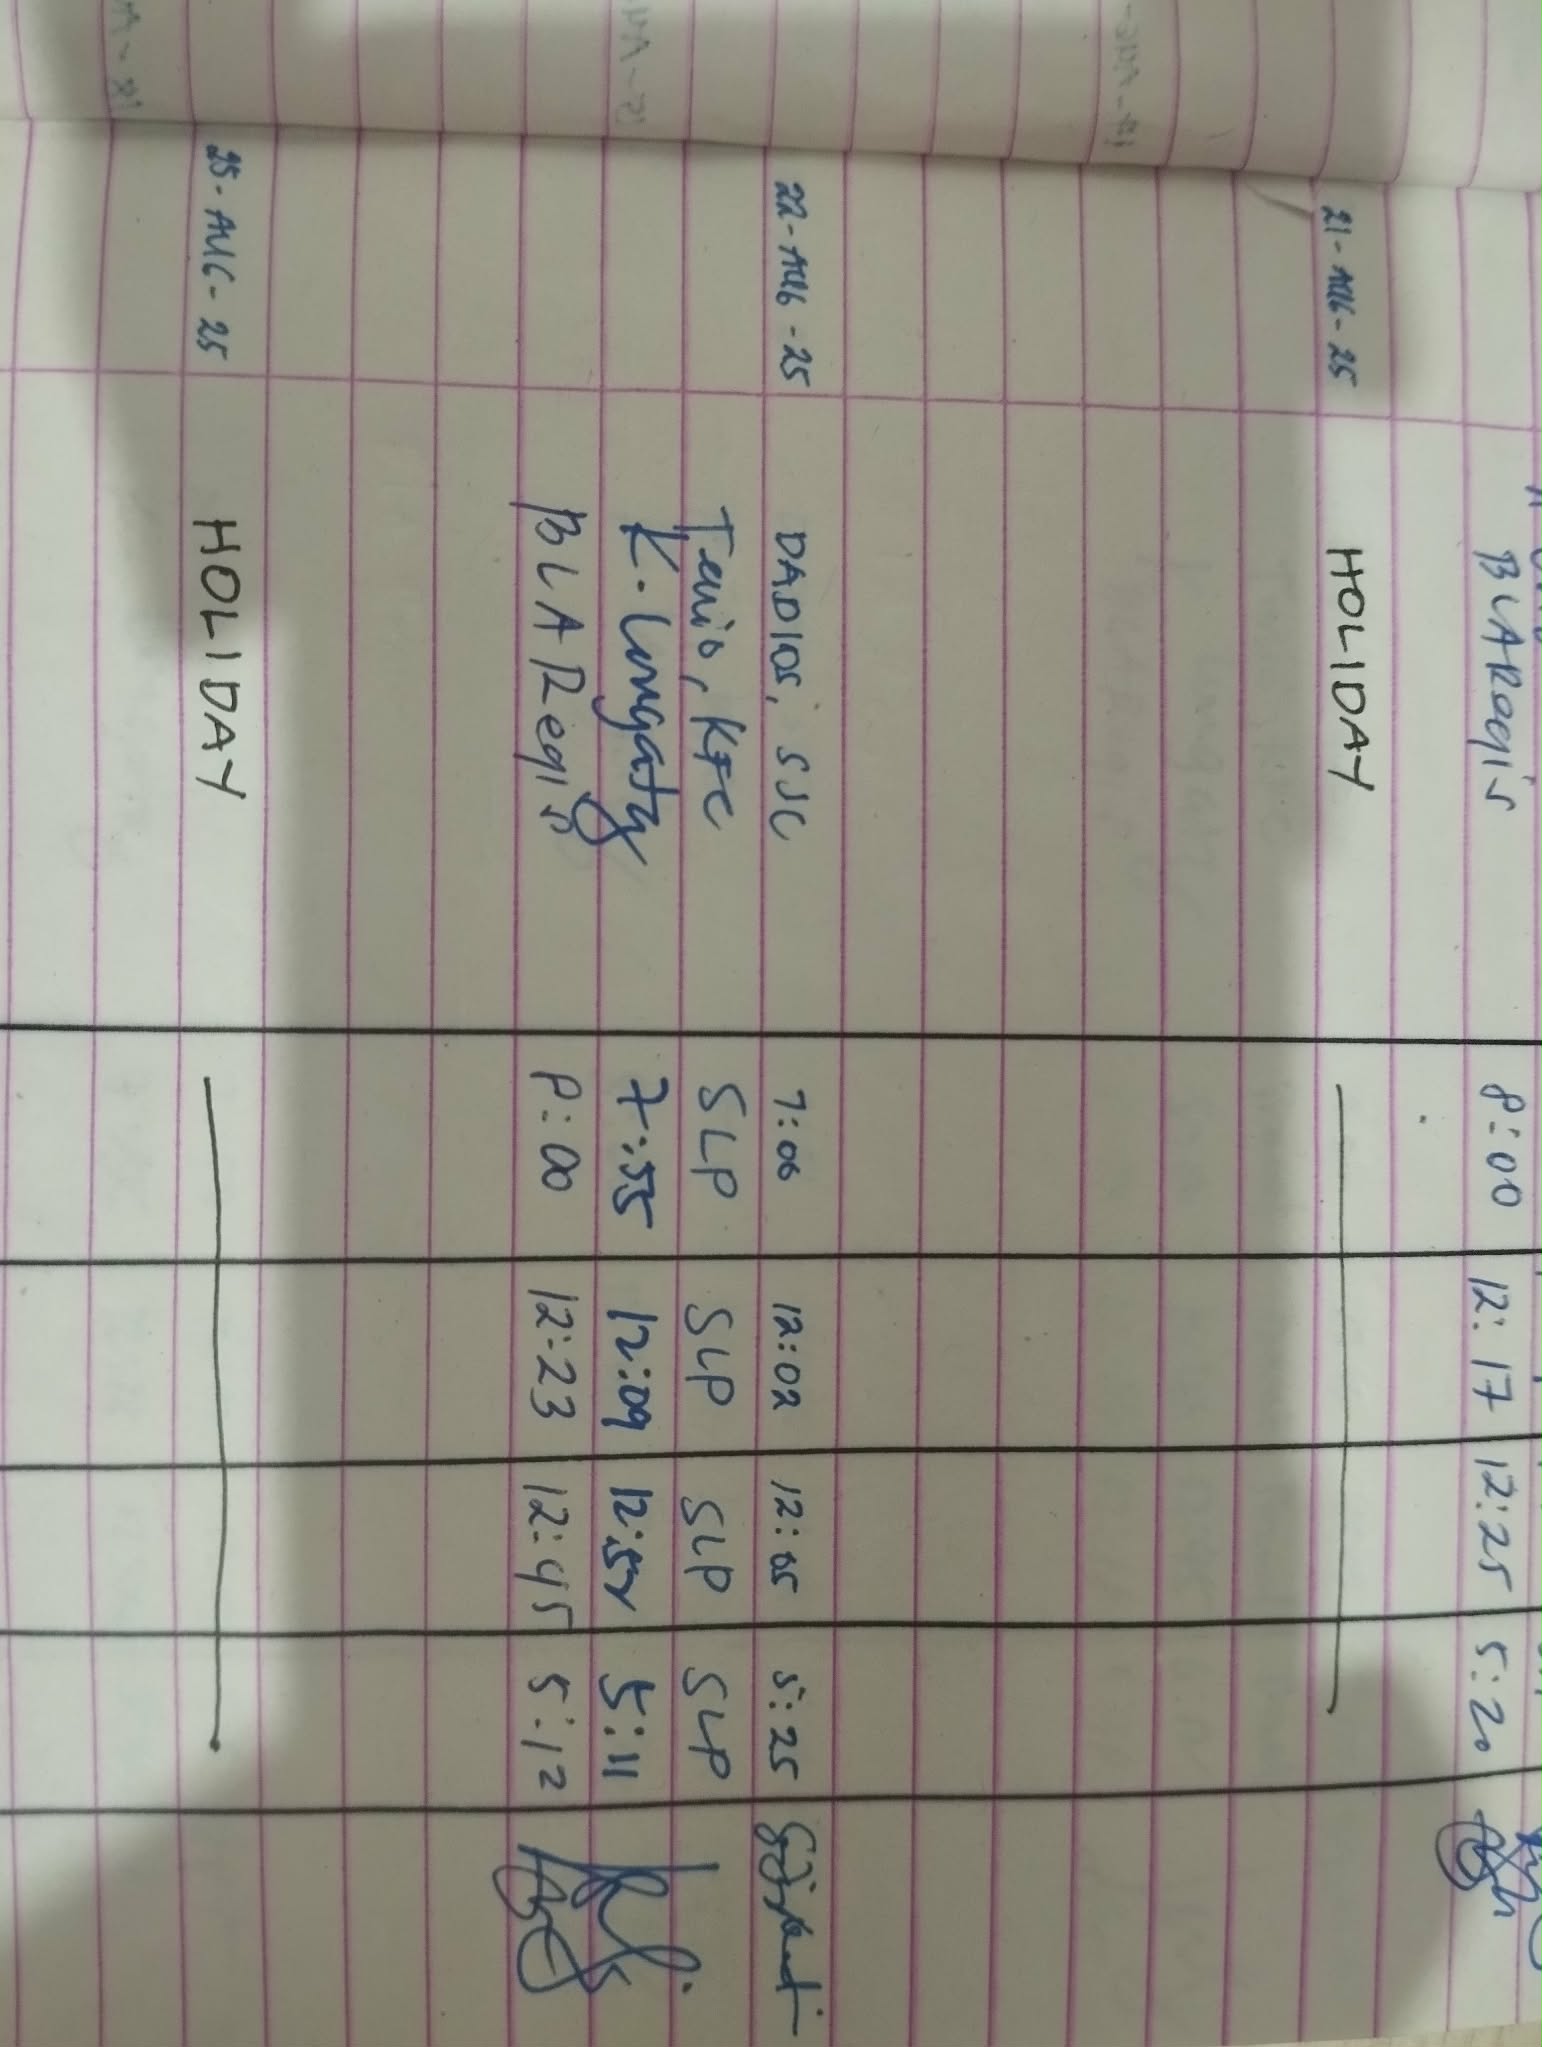 BLAReqis 8:00 12:17 12:25 5:20
21-AUG-25 HOLIDAY
22-AUG-25 DADIOS, SJC 7:06 12:02 12:05 5:25
Tenio, KFC SLP SLP SLP SLP
K. Lungaty 7:55 12:09 12:52 5:11
BLAReqis 8:00 12:23 12:45 5:12
25-AUG-25 HOLIDAY